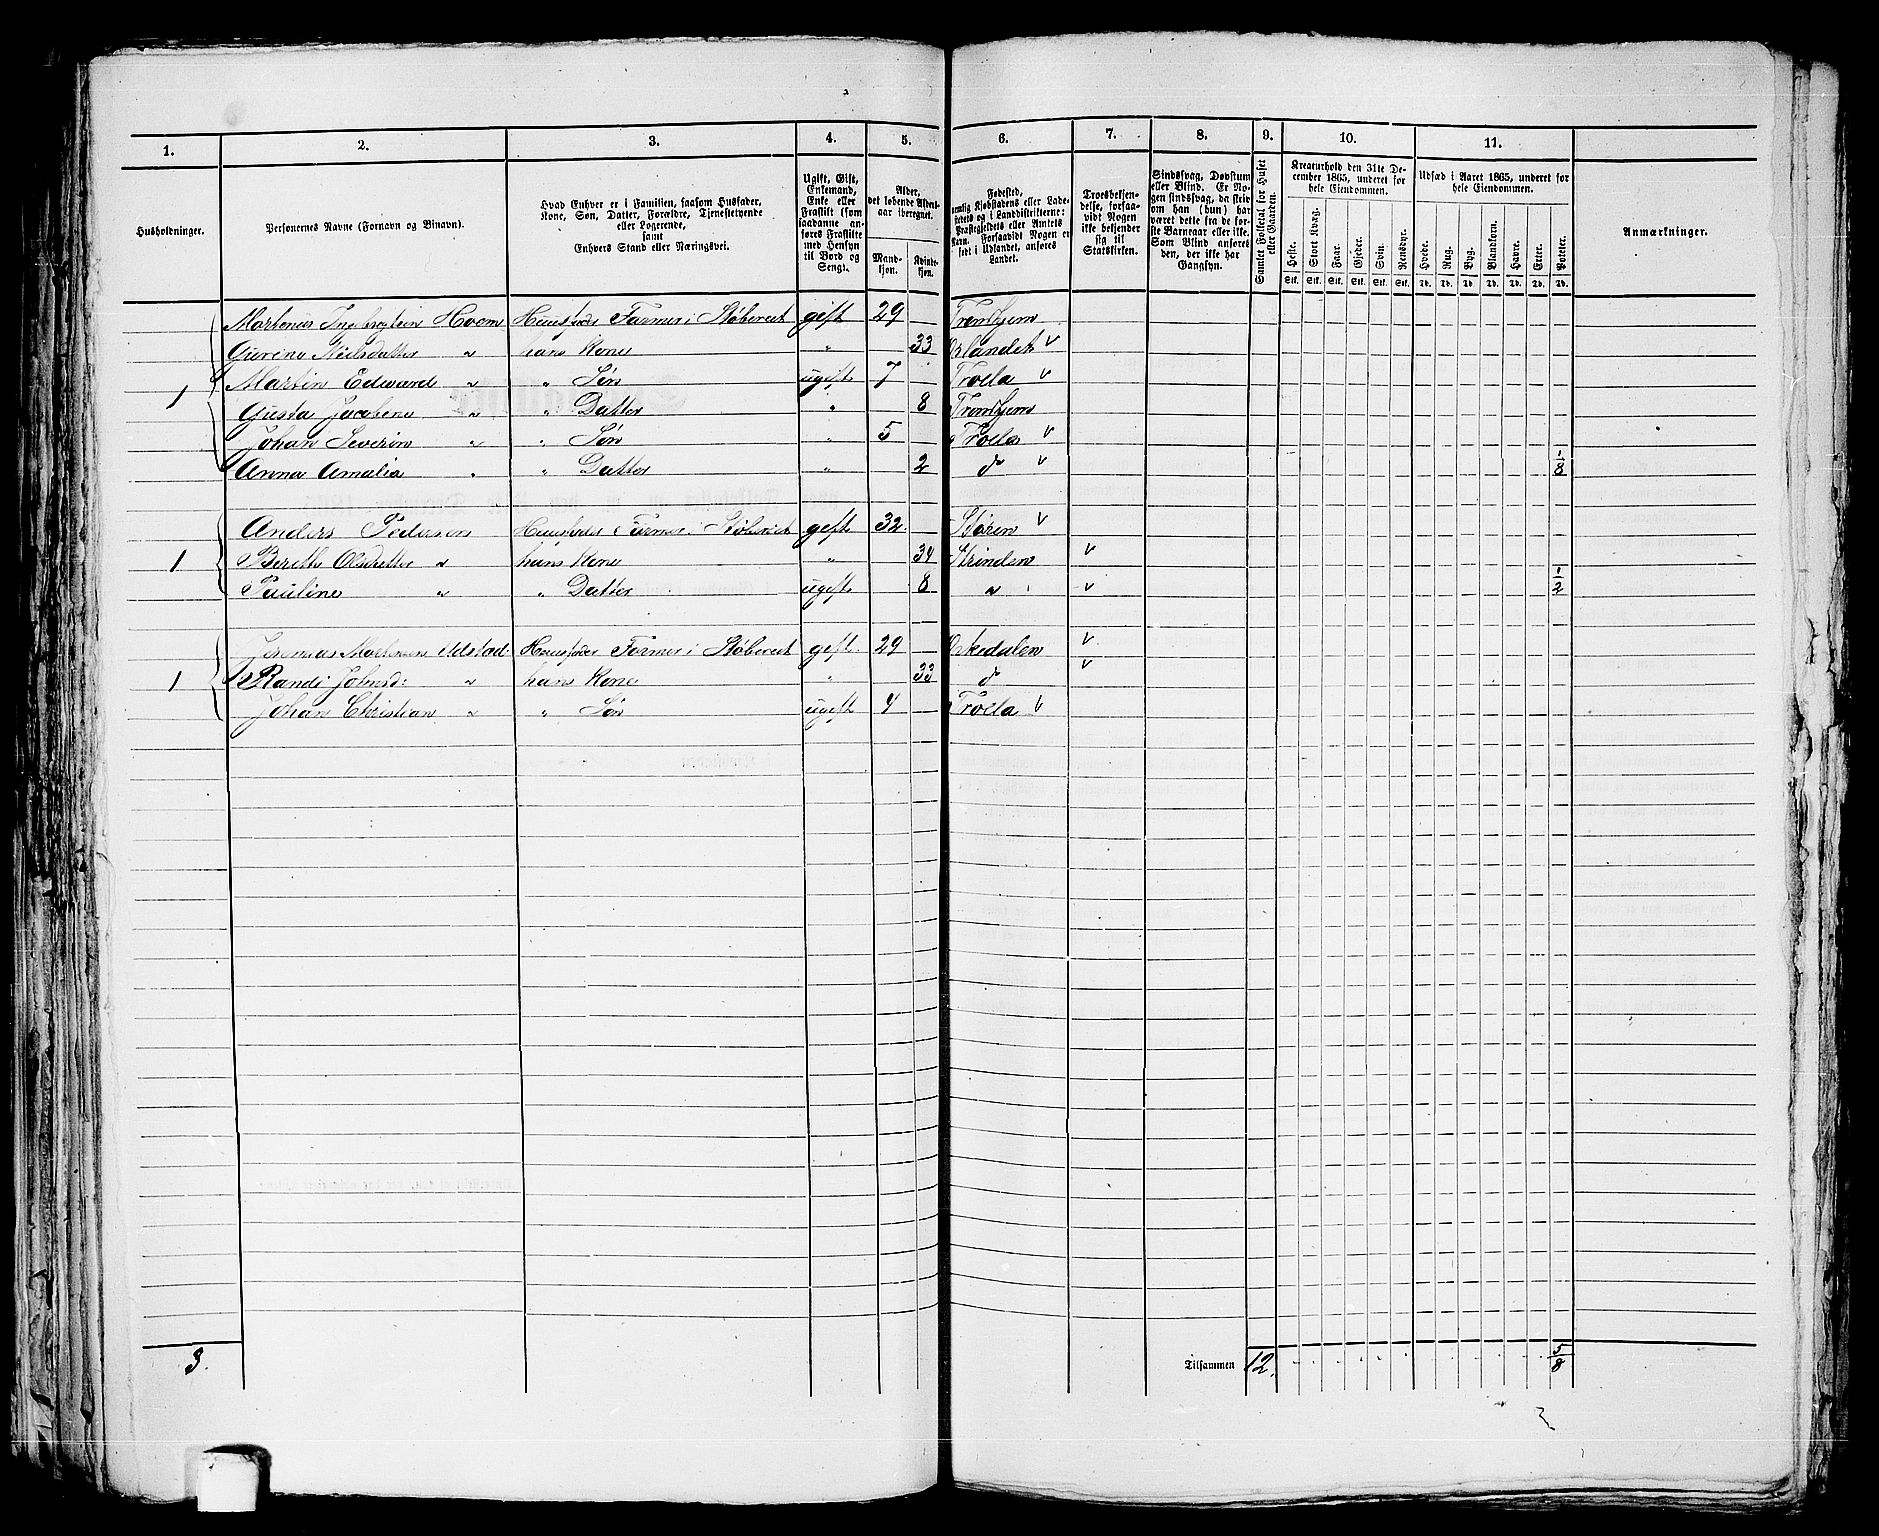 1. 2. 3. 4. 5. 6. 7. 8. 9. 10. 11.
Husholdninger.
Personernes Navne (Fornavn og Binavn).
Hvad Enhver er i Familien, saasom Husfader, Kone, Søn, Datter, Forældre, Tjenestetyende eller Logerende, samt Enhvers Stand eller Næringsvei.
Ugift, Gift, Enkemand, Enke eller Fraskilt (som saadanne anføres Fraskilte med Hensyn til Bord og Seng).
Alder, det løbende Aldersaar iberegnet.
Mandkjøn. Kvindekjøn.
Fødested, nemlig Kjøbstadens eller Ladestedets og i Landdistrikterne: Præstegjeldets eller Annexets Navn. Forsaavidt Nogen er født i Udlandet, anføres Landet.
Troesbekjendelse, forsaavidt Nogen ikke bekjender sig til Statskirken.
Sindssvag, Døvstum eller Blind. Er Nogen sindssvag, da skrives om han (hun) har været dette fra de første Barneaar eller ikke. Som Blind anføres den, der ikke har Gangsyn.
Samlet Folketal for Huset eller Gaarden.
Kreaturhold den 31te December 1865, underet for hele Eiendommen.
Heste. Stort Kvæg. Faar. Gjeder. Svin. Rensdyr.
Stk. Stk. Stk. Stk. Stk. Stk.
Udsæd i Aaret 1865, underet for hele Eiendommen.
Hvede. Rug. Byg. Blandkorn. Havre. Erter. Poteter.
Td. Td. Td. Td. Td. Td. Td.
Anmærkninger.
Hoem Huusfader Formeri Støberiet gift 29 Trondhjem
Nielsdatter " hans Kone " 33 Ørlandet v
Martin Edvard " " Søn ugift 7 Troela v
1 Gusta Jacobine " " Datter " 8 Trondhjem
Johan Severin " " Søn " 5 Troela v
Anna Amalia " " Datter " 2 do v 1/8
Anders Pedersen Huusfader Former i Støberiet gift 32 Støren v
1 Berethe Olsdatter " hans Kone " 34 Strinden v
Pauline " " Datter ugift 8 " v 1/2
Huusfader Former i Støberiet gift 29 Orkedalen v
1 Randi Johnsd: " hans Kone " 33 do v
Johan Christian " " Søn ugift 4 Troela v
3. Tilsammen 12. 5/8